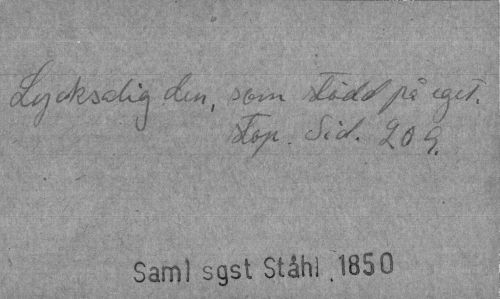 Lycksalig den, som stödd på eget.
Stop. Sid. 209.
Saml sgst Ståhl 1850